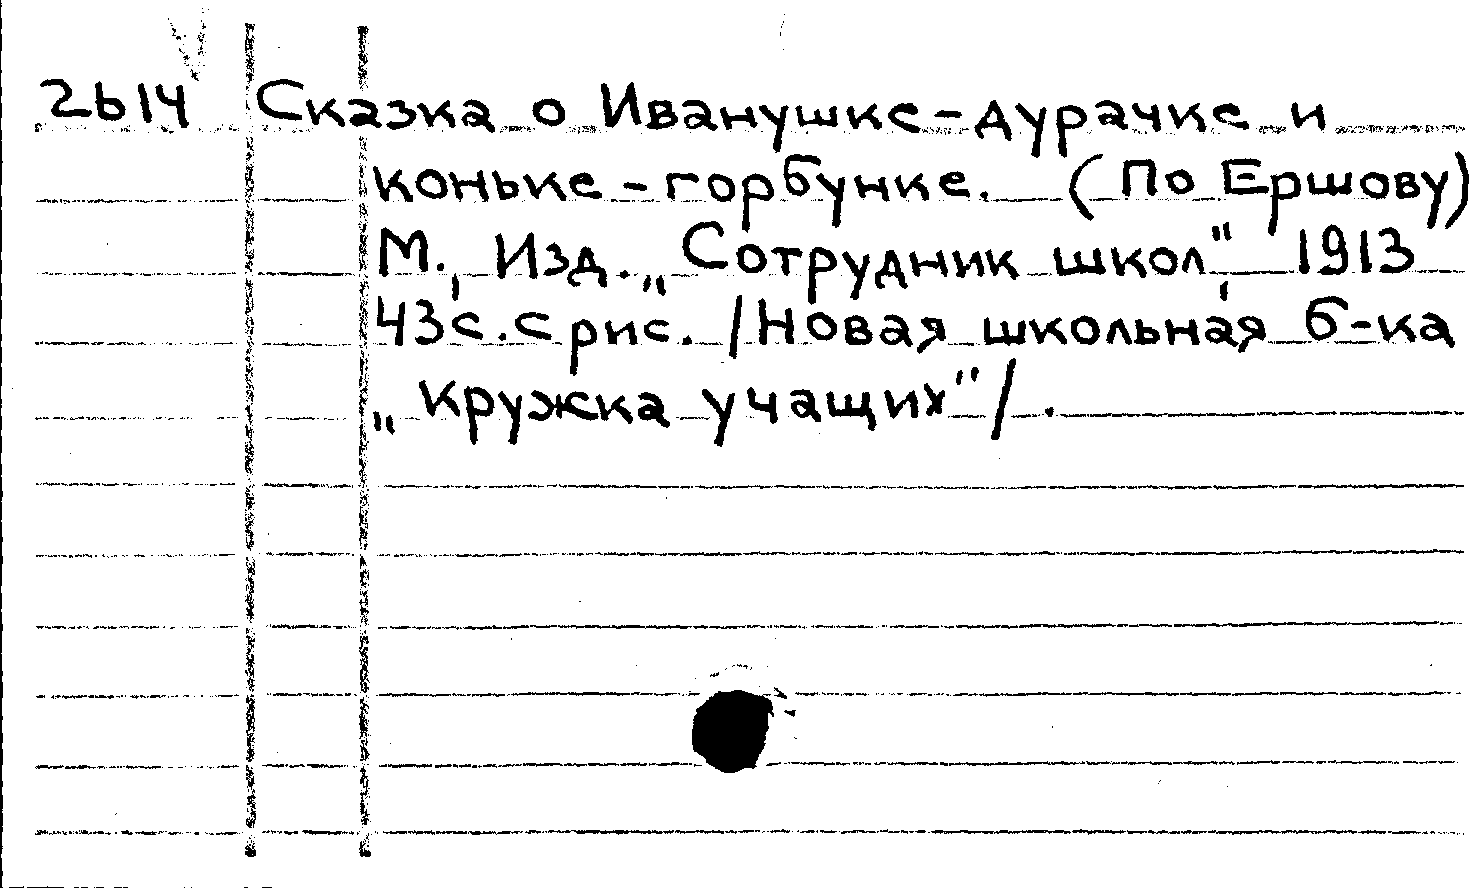 2614 Сказка о Иванушке-дурачке и
коньке-горбунке. (По Ершову)
М., Изд. „Сотрудник школ", 1913
43с. с рис. /Новая школьная б-ка
„кружка учащих"/.